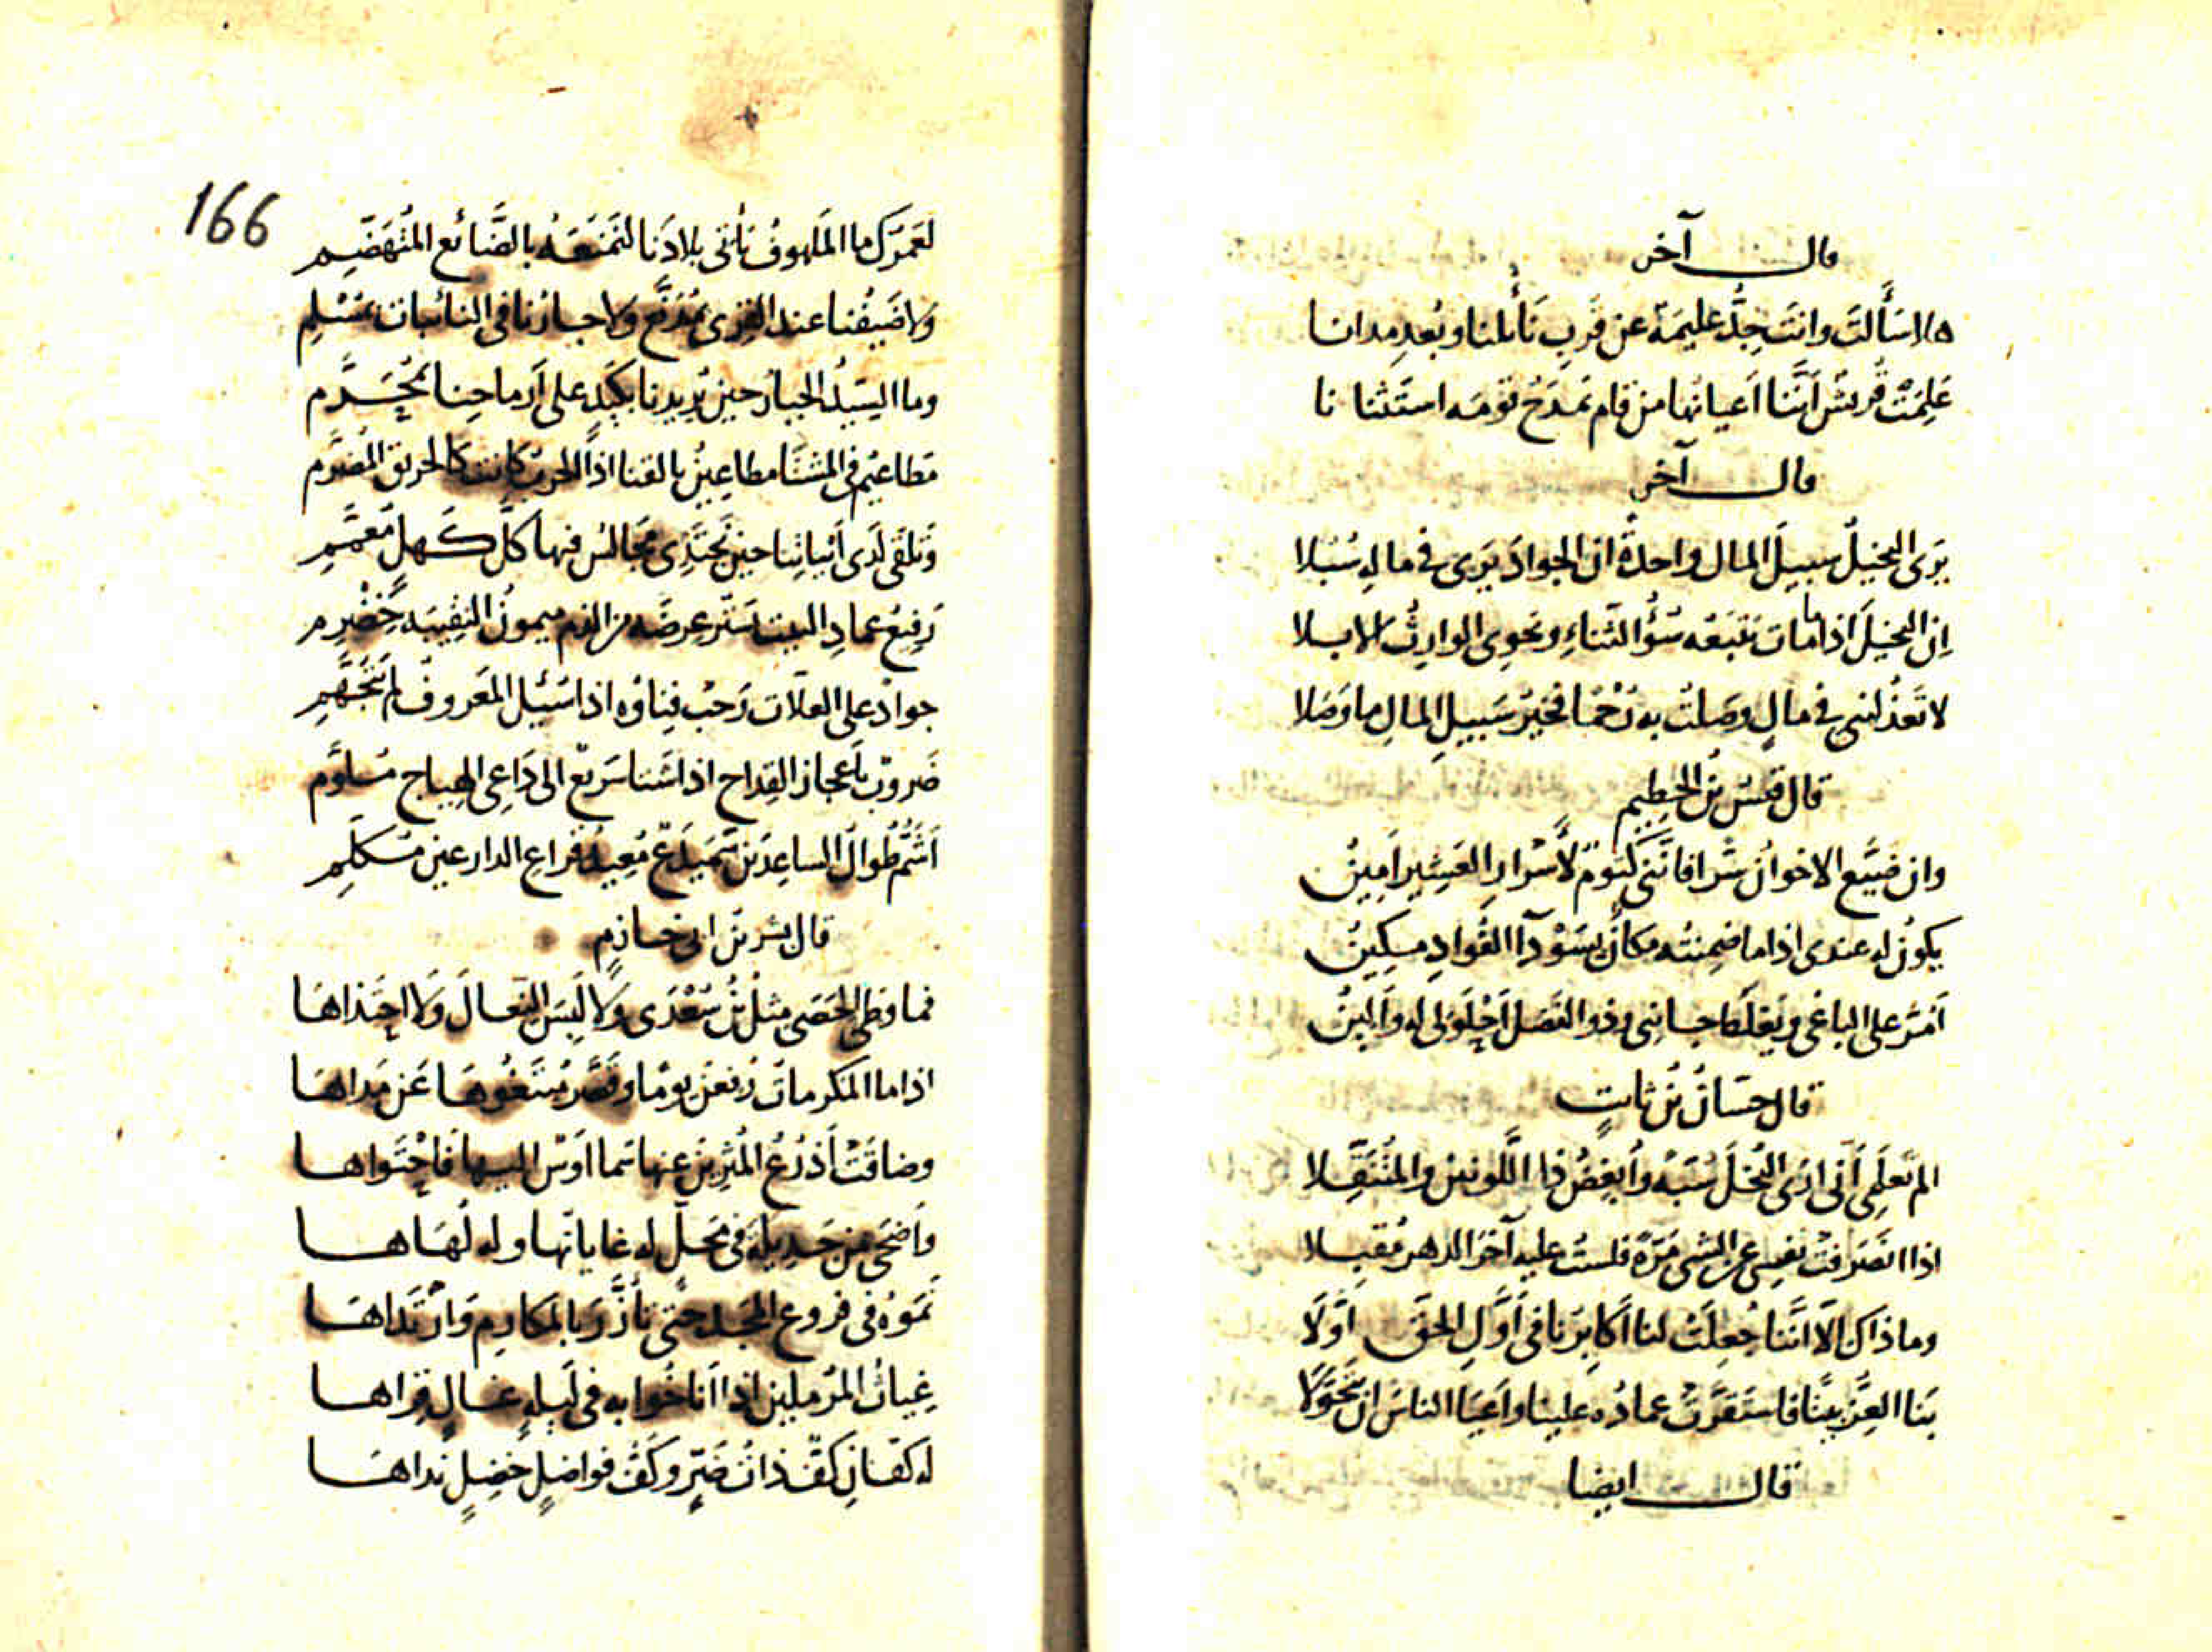 قال آخر
هلا سَأَلتَ وانتَ جِدُّ عليمَة عن قُربِ نَأئلنا وبُعدِ مدانا
عَلِمَتْ قُريشٌ اَنَّنا اَعيانُها من قام يَمدَحُ قومَه استَثنانا
قال آخر
يَرَى البخيلُ سبيلَ المال واحدةً ان الجوادَ يَرَى في مالهِ سُبُلا
اِن البخيلَ اذا ما مات تتبَعُه سُؤُ الثناءِ ويَحوِى الوارِثُ الابلا
لا تَعذُلينى في مالٍ وصَلتُ به رَحْمًا فخيرُ سَبيلِ المالِ ما وَصَلا
قال قيسُ بنُ الخطيم
وان ضيَّع الاخوانُ سِرًّا فانَّنى كَتومٌ لأسْرارِ العَشِيرِ اَمِينُ
يكونُ له عندى اذا ما ضمِنتُه مَكانٌ بسَوْدآ الفُوادِ مكِينُ
اَمُرُّ على الباغى ويَغلُظ جانِبى وذو القَصْل اَحْلَوْلى له وَاَلِينُ
قال حسّانُ بنُ ثابتٍ
الم تَعلَمِى اَنّى ارَى البُخلَ سُبَّةً واُبغِضُ ذا اللَّونين والمُتَنَقِّلا
اذا انصَرَفتْ نفسِى عن الشى مَرّةً فلستُ عليه آخرَ الدهر مُقبِلا
وما ذاك اِلّا انَّنا جُعِلَتْ لنا اَكابِرُنا في اَوَّلِ الحَقِّ اَوَّلا
بَنا العِزُّ بيتًا فاستقرَّتْ عمادُه علينا واَعيَا الناسَ ان يتحَوَّلا
قال ايضا
166
لَعَمرُك ما المَلهوفُ يأتى بلادَنا لنَمنَعَه بالضَّائع المُتهَضَّمِ
ولا ضَيفُنا عند القِرى بمُدَفَّعٍ ولا جارُنا في النائبات بمُسْلَمِ
وما السَيّدُ الجبارُ حين يُريدنا بكَيدٍ على اَرماحِنا بمُحَرَّم
مَطاعيمُ في المَشتَا مطاعِينُ بالقنا اذا الحربُ كانت كالحريق المُضَرَّم
وتَلقَى لَدى اَبياتِنا حين نُجتَدِى مجَالسَ فيها كلُّ كَهلٍ مُعَمَّمِ
رَفيعُ عمادِ البيت يَستُر عِرضَه من الذم ميمونُ النقيبَه خِضْرِمِ
جوادٌ على العِلّات رَحبٌ فِناؤُه اذا سُئِلَ المَعروفَ لم يتجَهَّمِ
ضَروبٌ بأعجاز القِداح اذا شَتا سَريعٌ الى دَاعِى الهِياج مُسَوَّم
اَشَمُّ طُوالُ الساعِدَينِ سَمَيدَعٌ مُعِيدُ قِراعِ الدارعين مُكَلَّمِ
قال بشر بن ابى خازم
فما وطِى الحَصَى مثلُ بنِ سُعْدَى ولا لَبِسَ النِعالَ ولا احتَذاها
اذا ما المكرماتُ رُفِعنَ يومًا وقَصَّر مُبتَغُوها عَن مَداها
وضاقَتْ اَذرُعُ المُثرِينَ عنها سَما اَوسٌ اليها فَاحْتَواها
واَضحَى من جَديلَة في مَحَلٍّ له غاياتُها وله لُهَاها
نَمَوه في فروع المَجدِ حتّى تأزَّرَ بالمَكارِم وَارْتَداها
غِياثُ المُرملين اذا اَناخُوا به في لَيلهٍ غالٍ قِراها
له كَفّانِ كَفٌّ ذاتُ ضَرٍّ وكَفُّ فواضلٍ خَضِلٍ نَداها